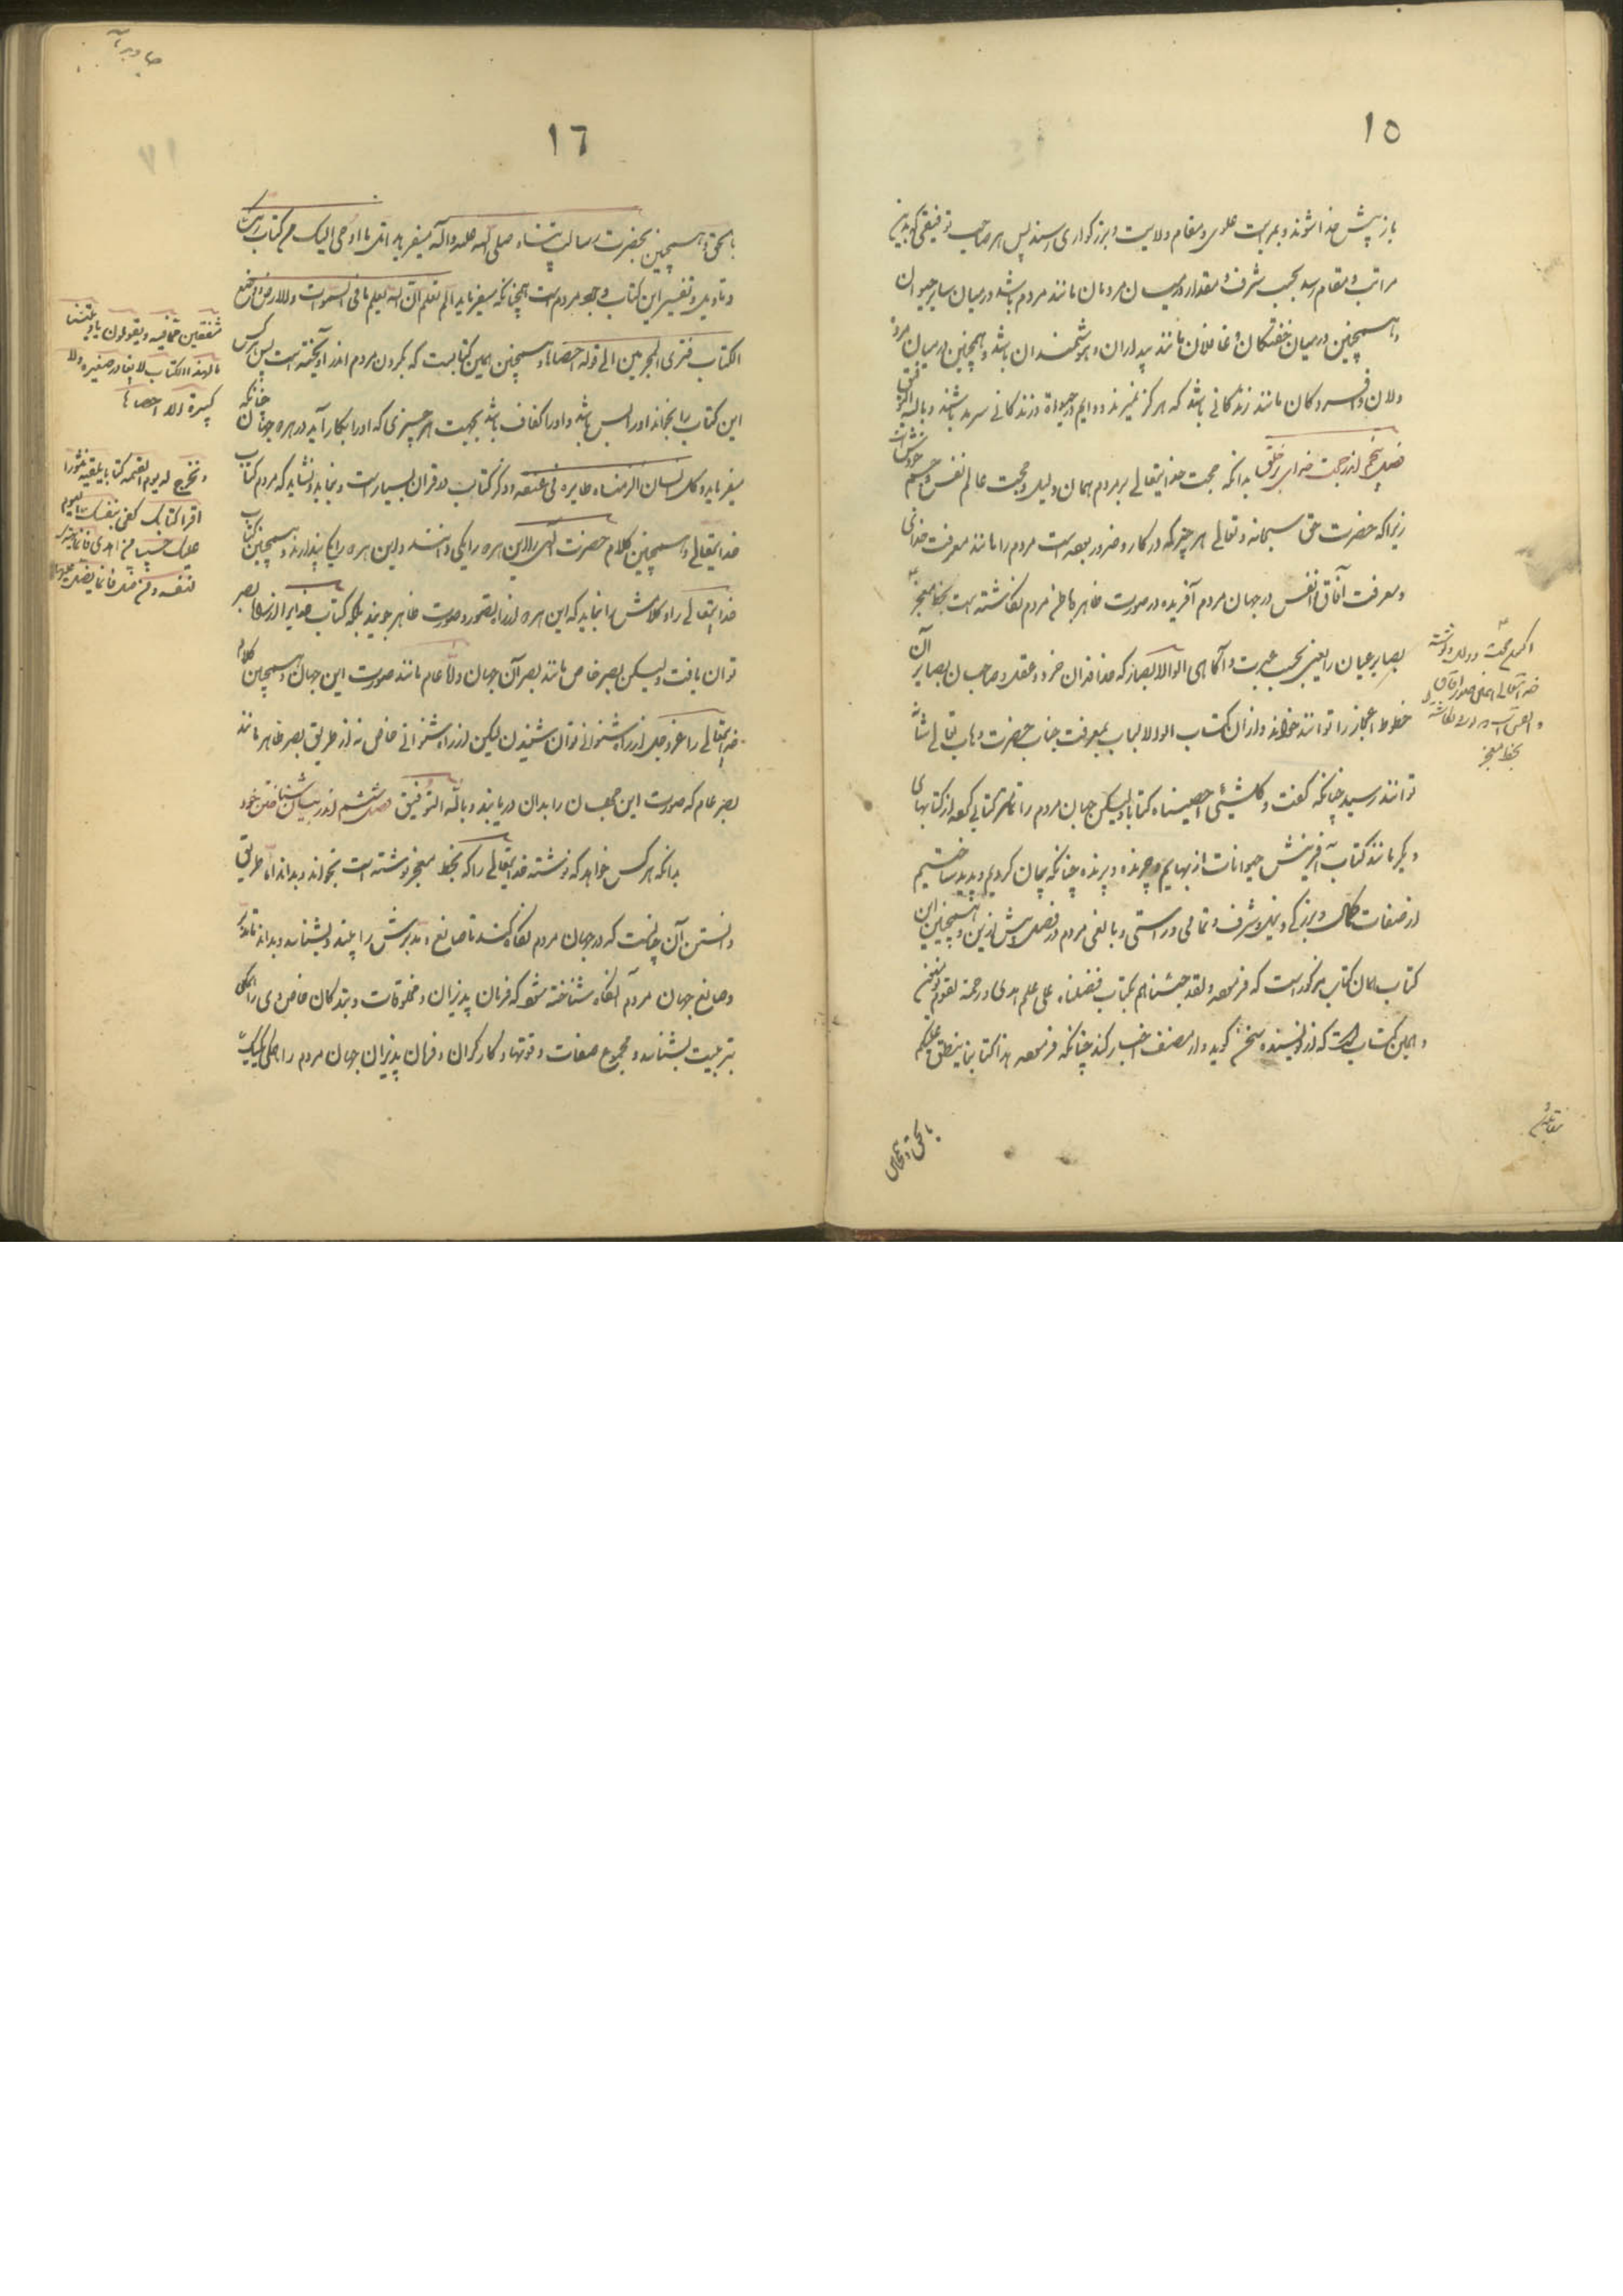 ١٥
باز پیش خدا شوند و بمراتب علوی و مقام ولایت و بزرکواری رسند پس هر صاحب توفیقی که بدین
مراتب و مقام رسد بحسب شرف و مقدار در میان مردمان مانند مردم باشد در میان سایر حیوان
و همچنین در میان خفتکان و غافلان مانند بیداران و هوشمندان باشد و همچنین در میان مرده
دلان و افسردکان مانند زندکانی باشد که هرکز نمیرند و دایم در حیوة و زندکانی سرمد باشند و بالله التوفیق
فصل پنجم اندر حجت خدای بر خلق بدانکه حجت خدایتعالی بر مردم همان دلیل و حجت عالم نفس و جسم خودش است
زیرا که حضرت حق سبحانه و تعالی هر چیز که در کار و ضرور بود است مردم را مانند معرفت خدائی
و معرفت آفاق و انفس در جهان مردم آفریده و در صورت ظاهر و باطن مردم نکاشته است بخط معجز
بصایر عیان را یعنی بحسب عبرت و آکاهی اولوالابصار که خداوندان خرد و عقلند و صاحبان بصایر آن
خطوط اعجاز را توانند خواند و از آن کتاب اولوالالباب بمعرفت جناب حضرت وهاب تعالی شانه
توانند رسید چنانکه کفت و کل شئی احصیناه کتابا ولیکن جهان مردم را تمامتر کتابی که از کتابهای
دیکر مانند کتاب آفرینش حیوانات از بهایم و چرنده و پرنده چنانکه بیان کردیم و پدید ساختیم
از صفات کمال و بزرکی و نیک و شرف و تمامی و راستی و بالغی مردم در فصل پیش ازین و همچنین این
کتاب همان کتاب مذکور است که فرمود و لقد جئناهم بکتاب فصلناه علی علم هدی و رحمة لقوم یؤمنون
و همین کتاب است که از نویسنده سخن کوید و از مصنف اخبار کند چنانکه فرمود هذا کتابنا ینطق علیکم
بخط معجز
١٦
بالحق و همچنین بحضرت رسالت پناه صلی الله علیه و آله میفرماید اتل ما اوحی الیک من کتاب ربک
و تاویل و تفسیر این کتاب وجود مردم است همچنانکه میفرماید الم تعلم ان الله یعلم ما فی السموات و الارض و وضع
الکتاب فتری المجرمین الی قوله احصاها و همچنین همین کتابست که بکردن مردم اندر آویخته است پس هر کس
این کتاب را بخواند او را بس باشد و او را کفاف باشد بجهت هر چیزی که او را بکار آید در هر دو جهان چنانکه
میفرماید و کل انسان الزمناه طایره فی عنقه و ذکر کتاب در قران بسیار است و نماید و نشاید که مردم کتاب
خدایتعالی و همچنین کلام حضرت الهی را این هر دو را یکی دانند و این هر دو را یکی پندارند و همچنین کتاب
خدایتعالی را و کلامش را نباید که این هر دو از راه تصور و صورت ظاهر جویند بلکه کتاب خدایرا از راه بصر
توان یافت ولیکن بصر خاص مانند بصر آن جهان و لا عام مانند صورت این جهان و همچنین کلام
خدایتعالی را عز و جل از راه شنوائی توان شنیدن لیکن از راه شنوائی خاص نه از طریق بصر ظاهر مانند
بصر عام که صورت این جهان را بدان دریابند و بالله التوفیق فصل ششم اندر بیان شناختن خود
بدانکه هر کس خواهد که نوشته خدایتعالی را که بخط معجز نوشته است بخواند و بداند اما طریق
دانستن آن چنانست که در جهان مردم نکاه کند تا صانع و مدبرش را بیند و بشناسد و بداند
و صانع جهان مردم آنکاه شناخته شود که فرمان پذیران و مخلوقات و بندکان خاص وی را همکی
بتربیت بشناسد و مجموع صفات و قوتها و کارکران و فرمان پذیران جهان مردم را همکی یکیک
مشفقین مما فیه و یقولون یا ویلتنا
ما لهذا الکتاب لا یغادر صغیرة ولا
کبیرة الا احصاها
و نخرج له یوم القیمه کتابا یلقیه منشورا
اقرا کتابک کفی بنفسک الیوم
علیک حسیبا من اهتدی فانما یهتدی
لنفسه و من ضل فانما یضل علیها